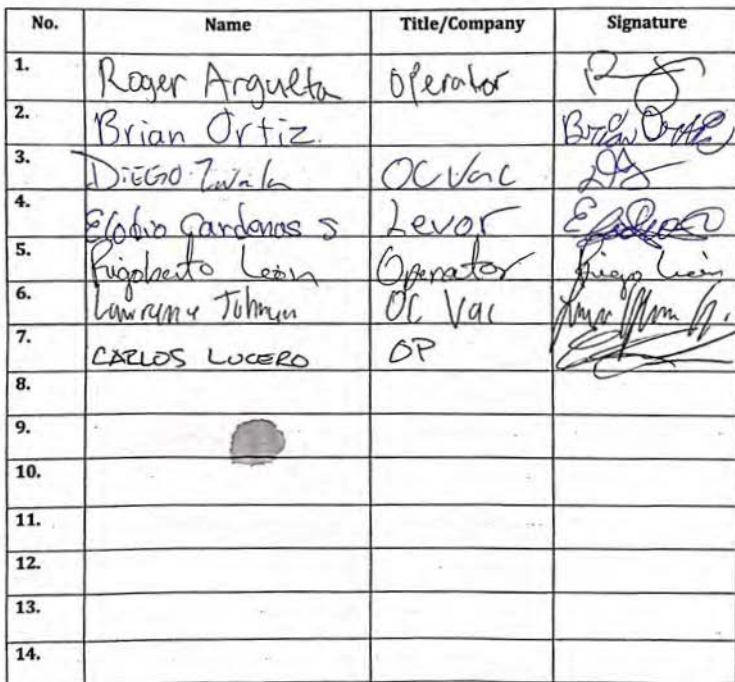 No. Name Title/Company Signature
1. Roger Argulta operator
2. Brian Ortiz Brian Ortiz
3. DIEGO OC Vac
4. Elodio Cardenas s Levor
5. Rigoberto León Operator Rigo León
6. Lawrence Johnson OC Vac
7. CARLOS LUCERO OP
8.
9.
10.
11.
12.
13.
14.